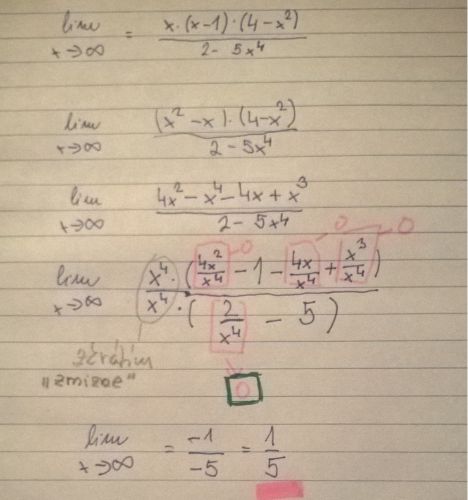 lim x→∞ = x·(x-1)·(4-x²) / 2-5x⁴
lim x→∞ (x²-x)·(4-x²) / 2-5x⁴
lim x→∞ 4x²-x⁴-4x+x³ / 2-5x⁴
0 0 0
lim x→∞ x⁴·(4x²/x⁴ -1 - 4x/x⁴ + x³/x⁴) / x⁴·(2/x⁴ - 5)
zkrátím
"zmizoe"
0
lim x→∞ = -1/-5 = 1/5